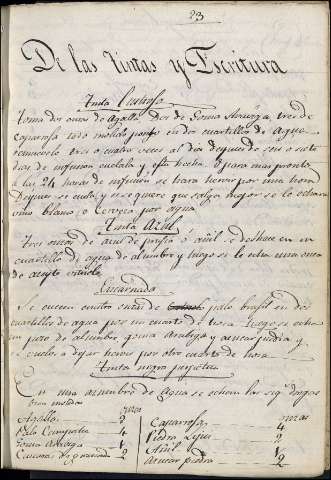 23
De las Tintas y Escritura
Tinta Lustrosa
Toma dos onzas de Agallas Dos de Goma Arabiga, tres de
caparrosa todo molido ponlo en dos cuartillos de Agua
remuevelo tres o cuatro veces al dia despues de seis o siete
dias de infusion cuelala y esta hecha. O para mas pronto
a las 24 horas de infusion se hara hervir por una hora
Despues se cuela y si se quiere que salga mejor se le echara
vino blanco o Cerveza por agua
Tinta Azul
Tres onzas de azul de prusia o añil se deshace en un
cuartillo de agua de alumbre y luego se le echa una onza
de aceyte vitriolo
Encarnada
Se cuecen cuatro onzas de palo brasil en dos
cuartillos de agua por un cuarto de hora luego se echa
un poco de alumbre goma Arabiga y azucar piedra y
se vuelve a dejar hervir por otro cuarto de hora
Tinta negra perpetua
En una azumbre de Agua se echan las sig.tes drogas
bien molidas
onzas
Agallas 3
Palo Campeche 4
Goma Arabiga 1
Cascaras de granada 2
onzas
Caparrosa 4
Piedra Lipiz 2
Añil 1
Azucar piedra 2